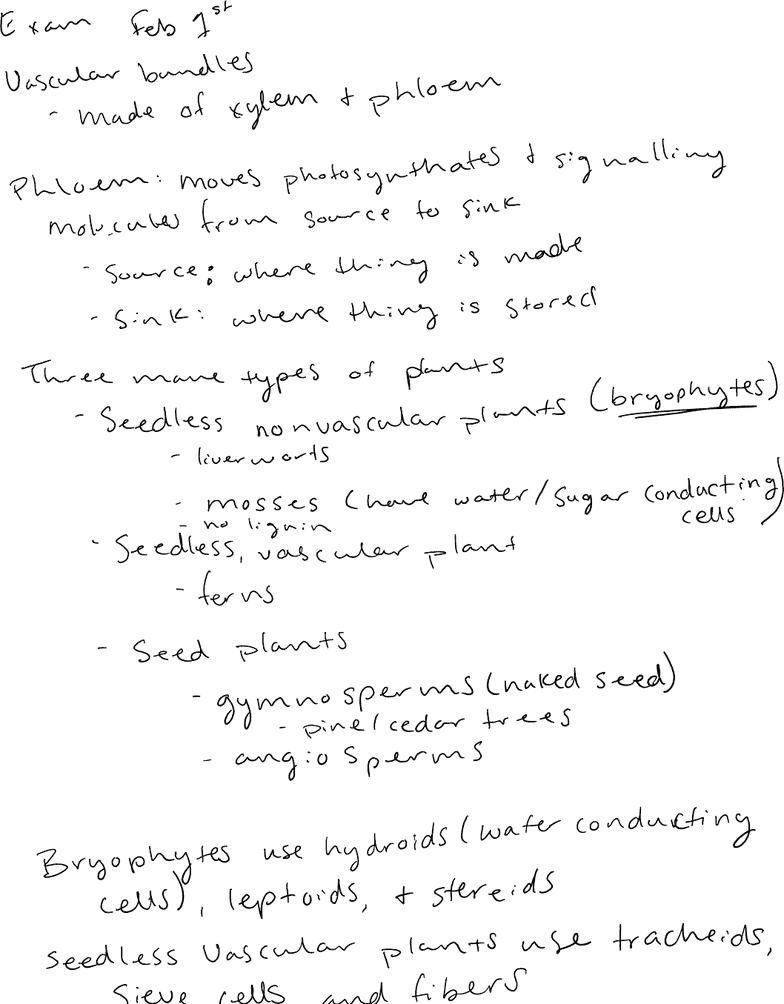 Exam Feb 1st
Vascular bundles
- made of xylem + phloem
Phloem: moves photosynthates + signalling
molecules from source to sink
- Source: where thing is made
- Sink: where thing is stored
Three mane types of plants
- Seedless nonvascular plants (bryophytes)
- liverworts
- mosses (have water/sugar conducting
cells)
- no lignin
- Seedless, vascular plant
- ferns
- Seed plants
- gymnosperms (naked seed)
- pine/cedar trees
- angiosperms
Bryophytes use hydroids (water conducting
cells), leptoids, + stereids
Seedless Vascular plants use tracheids,
Sieve cells and fibers